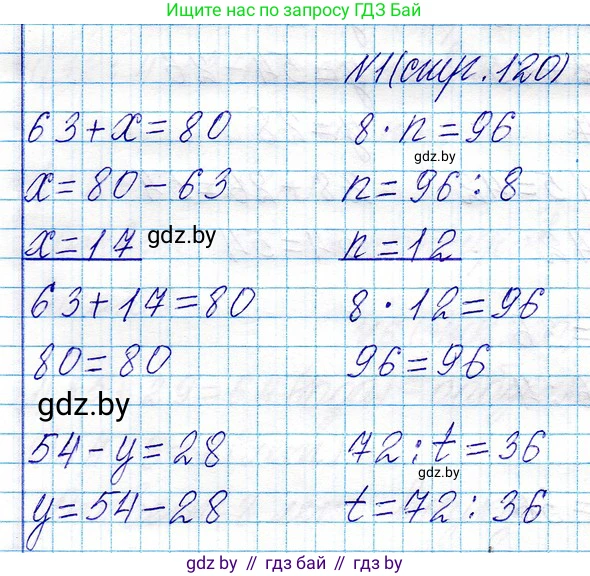 Ищите нас по запросу ГДЗ Бай
№1(стр.120)
63+x=80 8·n=96
gdz.by
x=80-63 n=96:8
x=17 gdz.by n=12
63+17=80 8·12=96
80=80 96=96
gdz.by
54-y=28 72:t=36
gdz.by
y=54-28 t=72:36
gdz.by // гдз бай // gdz.by